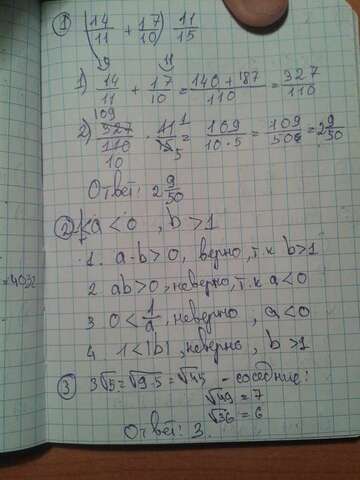 ① (14/11 + 17/10) 11/15
9 11
1) 14/11 + 17/10 = 140+187/110 = 327/110
109
2) 327/110 · 11/15 = 109/10·5 = 109/50 = 2 9/50
10 5 1
Ответ: 2 9/50
② a<0, b>1
1. a-b>0, верно, т.к b>1
2 ab>0, неверно, т.к a<0
3 0<1/a, неверно, a<0
4. 1<|b|, неверно, b>1
③ 3√5=√9·5=√45 - соседние:
√49 = 7
√36 = 6
Ответ: 3.
=4032